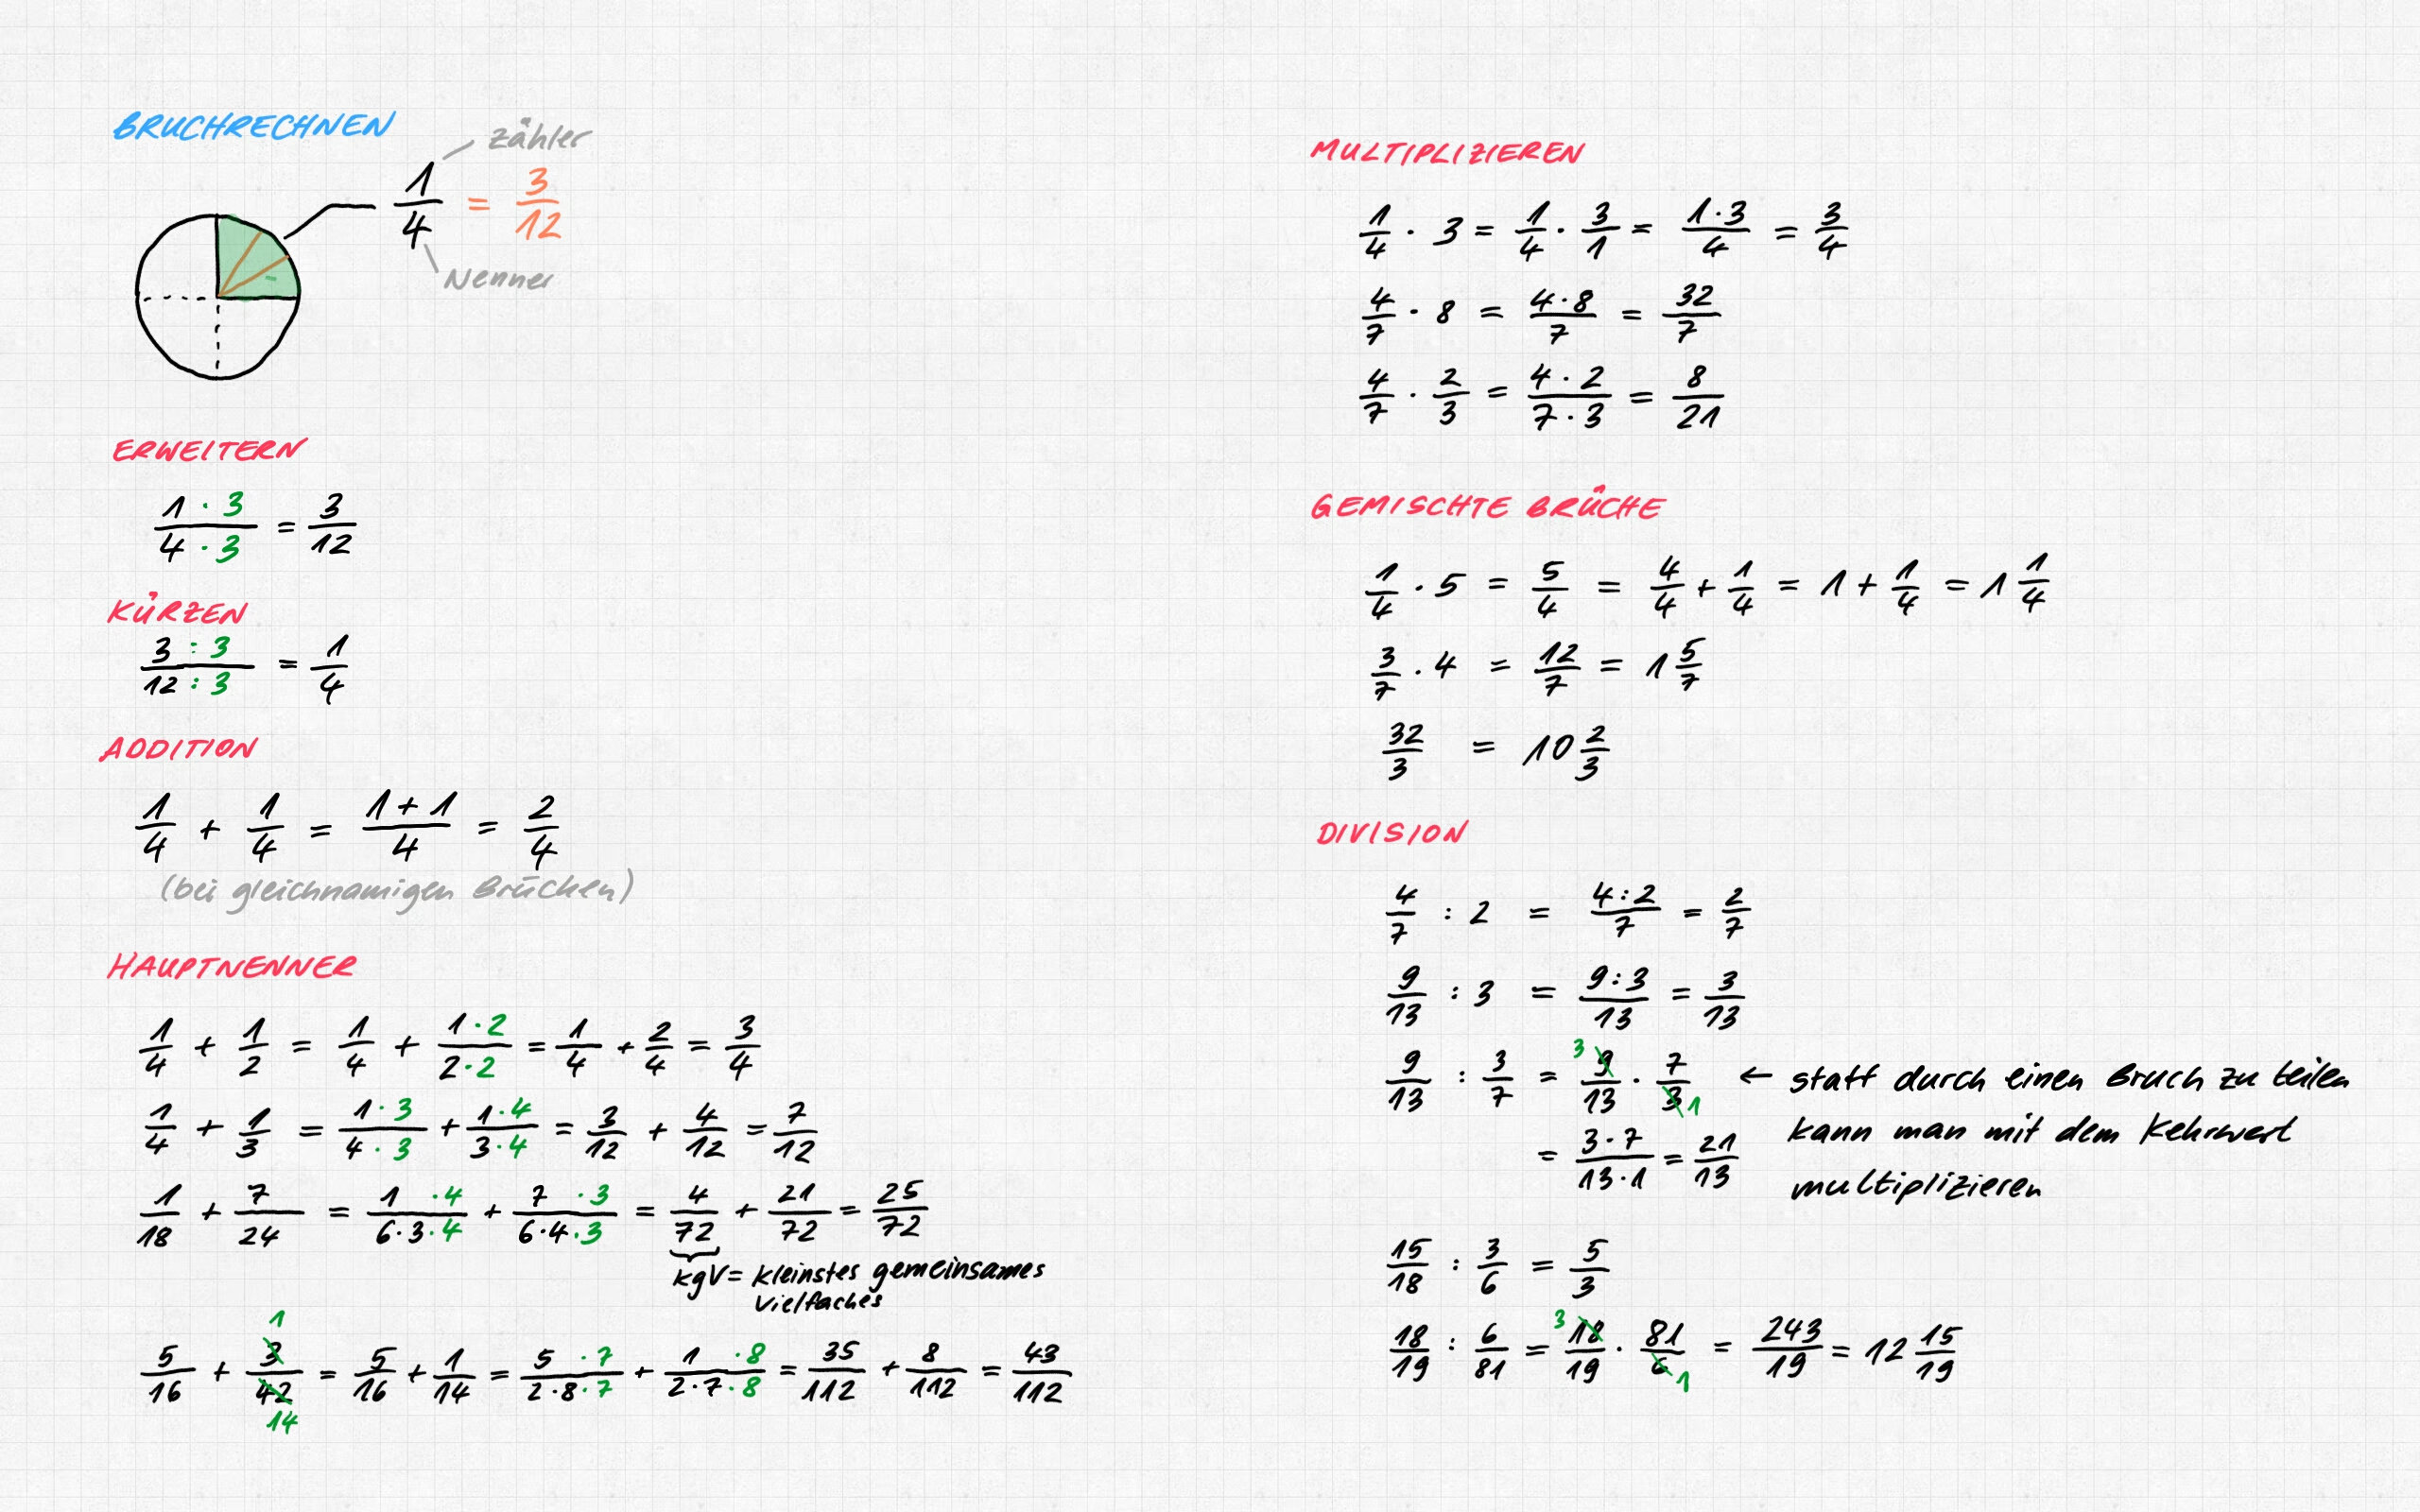 BRUCHRECHNEN
Zähler
1/4 = 3/12
Nenner
ERWEITERN
(1 · 3)/(4 · 3) = 3/12
KÜRZEN
(3 : 3)/(12 : 3) = 1/4
ADDITION
1/4 + 1/4 = (1 + 1)/4 = 2/4
(bei gleichnamigen Brüchen)
HAUPTNENNER
1/4 + 1/2 = 1/4 + (1 · 2)/(2 · 2) = 1/4 + 2/4 = 3/4
1/4 + 1/3 = (1 · 3)/(4 · 3) + (1 · 4)/(3 · 4) = 3/12 + 4/12 = 7/12
1/18 + 7/24 = (1 · 4)/(6 · 3 · 4) + (7 · 3)/(6 · 4 · 3) = 4/72 + 21/72 = 25/72
kgV = kleinstes gemeinsames
Vielfaches
1
5/16 + 3/42 = 5/16 + 1/14 = (5 · 7)/(2 · 8 · 7) + (1 · 8)/(2 · 7 · 8) = 35/112 + 8/112 = 43/112
14
MULTIPLIZIEREN
1/4 · 3 = 1/4 · 3/1 = (1 · 3)/4 = 3/4
4/7 · 8 = (4 · 8)/7 = 32/7
4/7 · 2/3 = (4 · 2)/(7 · 3) = 8/21
GEMISCHTE BRÜCHE
1/4 · 5 = 5/4 = 4/4 + 1/4 = 1 + 1/4 = 1 1/4
3/7 · 4 = 12/7 = 1 5/7
32/3 = 10 2/3
DIVISION
4/7 : 2 = (4 : 2)/7 = 2/7
9/13 : 3 = (9 : 3)/13 = 3/13
3
9/13 : 3/7 = 9/13 · 7/3 ← statt durch einen Bruch zu teilen
1
kann man mit dem Kehrwert
= (3 · 7)/(13 · 1) = 21/13
multiplizieren
15/18 : 3/6 = 5/3
3
18/19 : 6/81 = 18/19 · 81/6 = 243/19 = 12 15/19
1